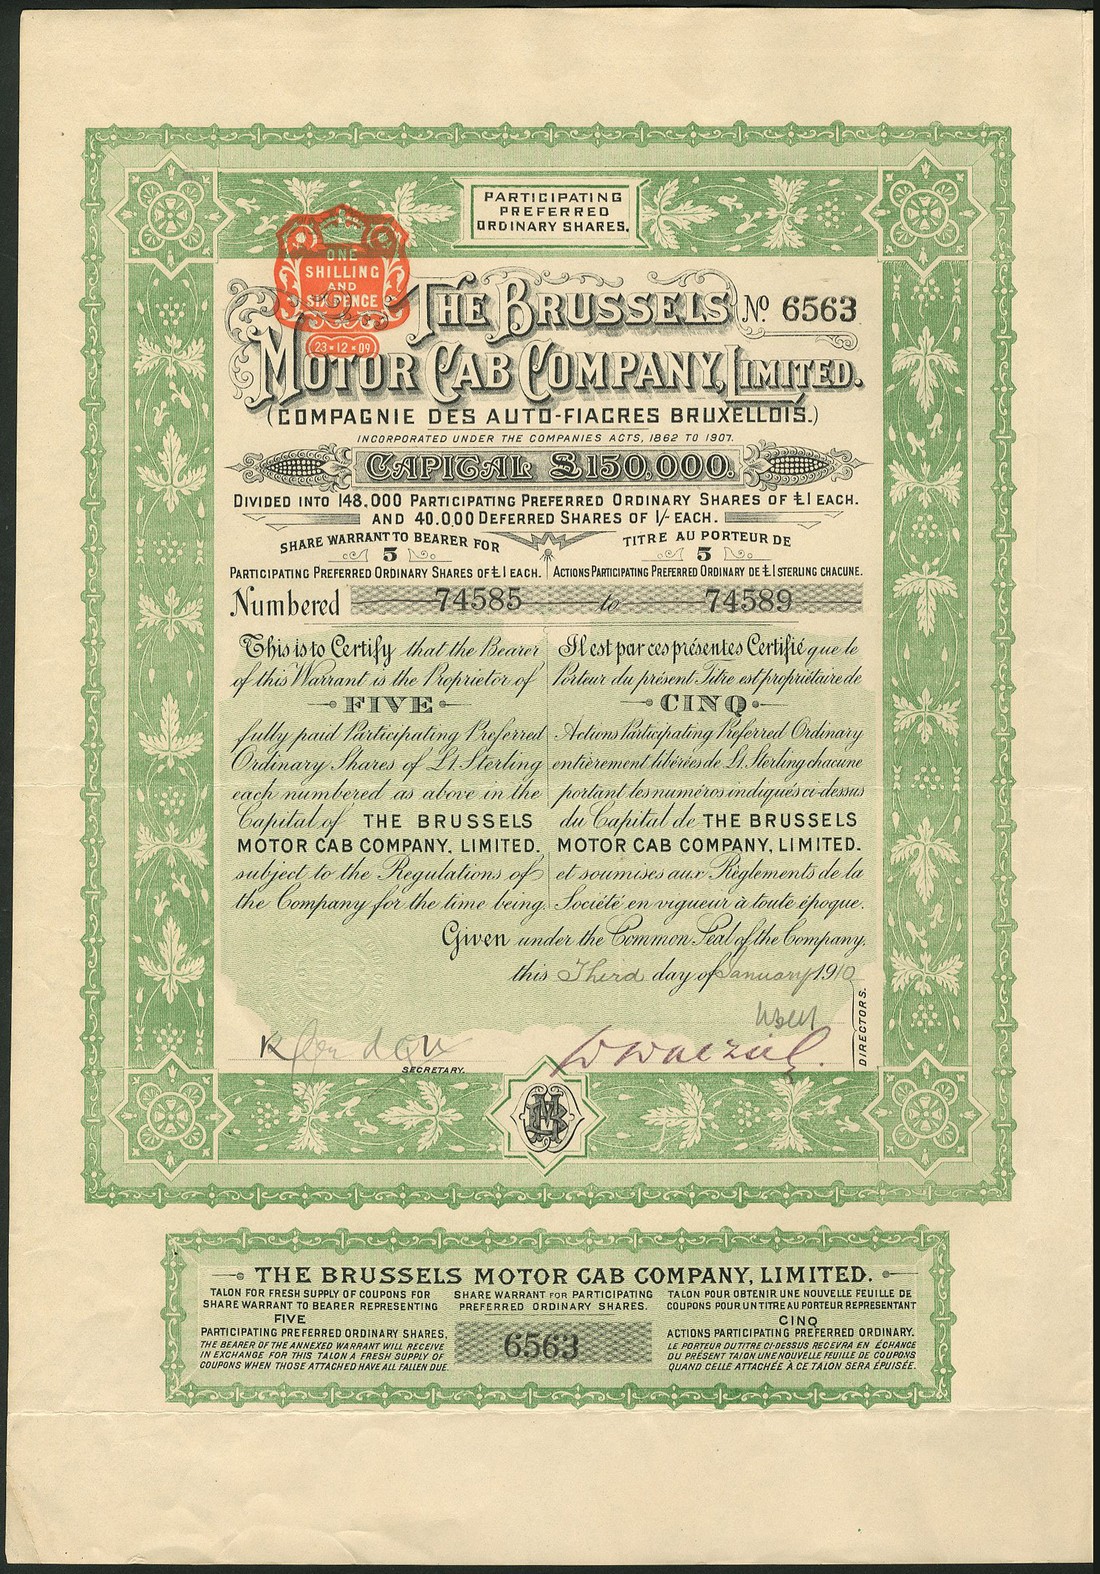 PARTICIPATING
PREFERRED
ORDINARY SHARES.
ONE
SHILLING
AND
SIXPENCE
23·12·09
THE BRUSSELS No 6563
MOTOR CAB COMPANY, LIMITED.
(COMPAGNIE DES AUTO-FIACRES BRUXELLOIS.)
INCORPORATED UNDER THE COMPANIES ACTS, 1862 TO 1907.
CAPITAL £150,000.
DIVIDED INTO 148,000 PARTICIPATING PREFERRED ORDINARY SHARES OF £1 EACH.
AND 40.000 DEFERRED SHARES OF 1/- EACH.
SHARE WARRANT TO BEARER FOR
5
PARTICIPATING PREFERRED ORDINARY SHARES OF £1 EACH.
TITRE AU PORTEUR DE
5
ACTIONS PARTICIPATING PREFERRED ORDINARY DE £1 STERLING CHACUNE.
Numbered 74585 to 74589
This is to Certify that the Bearer
of this Warrant is the Proprietor of
FIVE
fully paid Participating Preferred
Ordinary Shares of £1 Sterling
each numbered as above in the
Capital of THE BRUSSELS
MOTOR CAB COMPANY, LIMITED.
subject to the Regulations of
the Company for the time being.
Il est par ces présentes Certifié que le
Porteur du présent Titre est propriétaire de
CINQ
Actions Participating Preferred Ordinary
entièrement libérées de £1. Sterling chacune
portant les numéros indiqués ci-dessus
du Capital de THE BRUSSELS
MOTOR CAB COMPANY, LIMITED.
et soumises aux Règlements de la
Société en vigueur à toute époque.
Given under the Common Seal of the Company,
this Third day of January 1910
DIRECTORS.
SECRETARY.
THE BRUSSELS MOTOR CAB COMPANY, LIMITED.
TALON FOR FRESH SUPPLY OF COUPONS FOR
SHARE WARRANT TO BEARER REPRESENTING
FIVE
PARTICIPATING PREFERRED ORDINARY SHARES,
THE BEARER OF THE ANNEXED WARRANT WILL RECEIVE
IN EXCHANGE FOR THIS TALON A FRESH SUPPLY OF
COUPONS WHEN THOSE ATTACHED HAVE ALL FALLEN DUE.
SHARE WARRANT FOR PARTICIPATING
PREFERRED ORDINARY SHARES.
6563
TALON POUR OBTENIR UNE NOUVELLE FEUILLE DE
COUPONS POUR UN TITRE AU PORTEUR REPRESENTANT
CINQ
ACTIONS PARTICIPATING PREFERRED ORDINARY.
LE PORTEUR DU TITRE CI-DESSUS RECEVRA EN ÉCHANGE
DU PRÉSENT TALON UNE NOUVELLE FEUILLE DE COUPONS
QUAND CELLE ATTACHÉE À CE TALON SERA ÉPUISÉE.